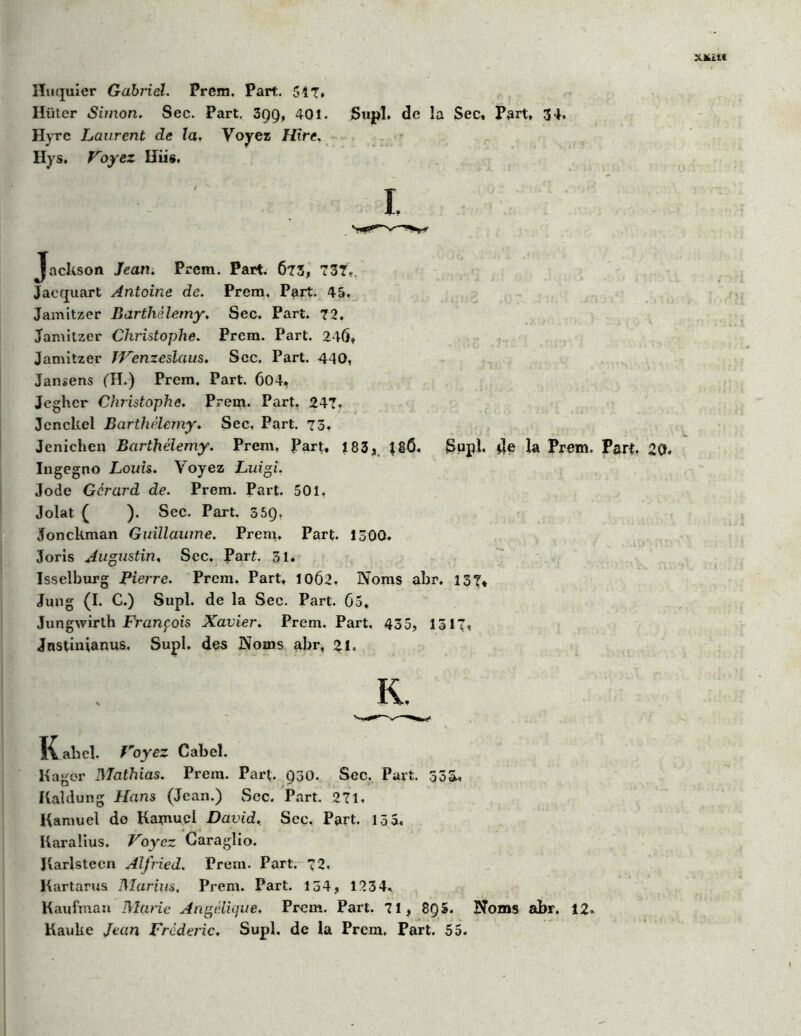 Huquier Gabriel. Prem. Part. 517.
Hüter Simon. Sec. Part. 399, 401. Supl. de la Sec. Part. 34.
Hyre Laurent de la. Voyez Hire.
Hys. Voyez Hüs.
I.
Jackson Jean. Prem. Part. 673, 737.
Jacquart Antoine de. Prem. Part. 45.
Jamitzer Barthélemy. Sec. Part. 72.
Jamitzer Christophe. Prem. Part. 246,
Jamitzer Wenzeslaus. Sec. Part. 440,
Jansens (H.) Prem. Part. 604,
Jegher Christophe. Prem. Part. 247.
Jenckel Barthélemy. Sec. Part. 73.
Jenichen Barthélemy. Prem. Part. 183, 186. Supl. de la Prem. Part. 20.
Ingegno Louis. Voyez Luigi.
Jode Gérard de. Prem. Part. 501.
Jolat ( ). Sec. Part. 359.
Jonckman Guillaume. Prem. Part. 1300.
Joris Augustin. Sec. Part. 31.
Isselburg Pierre. Prem. Part. 1062. Noms abr. 137.
Jung (I. C.) Supl. de la Sec. Part. 65.
Jungwirth François Xavier. Prem. Part. 435, 1317.
Justinianus. Supl. des Noms abr. 21.
K.
Kabel. Voyez Cabel.
Kager Mathias. Prem. Part. 930. Sec. Part.
Kaldung Hans (Jean.) Sec. Part. 271.
Kamuel do Kamuel David. Sec. Part. 135.
Karalius. Voyez Caraglio.
Karlsteen Alfried. Prem. Part. 72.
Kartarus Marius. Prem. Part. 134, 1234.
Kaufman Marie Angélique. Prem. Part. 71, 895. Noms abr. 12.
Kauke Jean Fréderic. Supl. de la Prem. Part. 55.